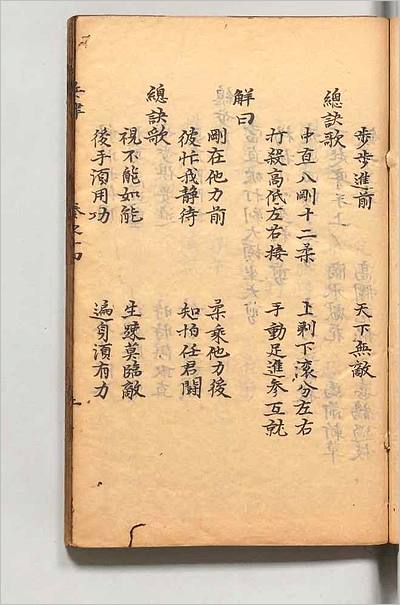 步步進前 天下無敵
總訣歌
中直八剛十二柔 上剃下滚分左右
打殺高低左右接 手動足進參互就
解曰
剛在他力前 柔乘他力後
彼忙我静待 知拍任君鬪
總訣歌
視不能如能 生踈莫臨敵
後手須用功 遍身須有力